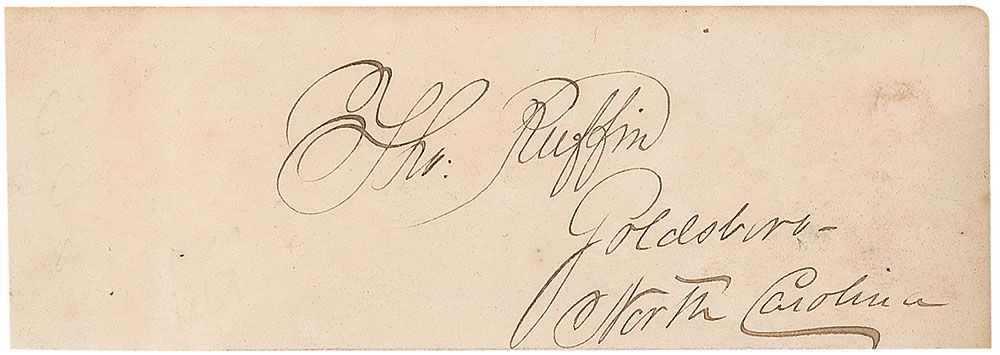 Tho. Ruffin
Goldsboro-
North Carolina